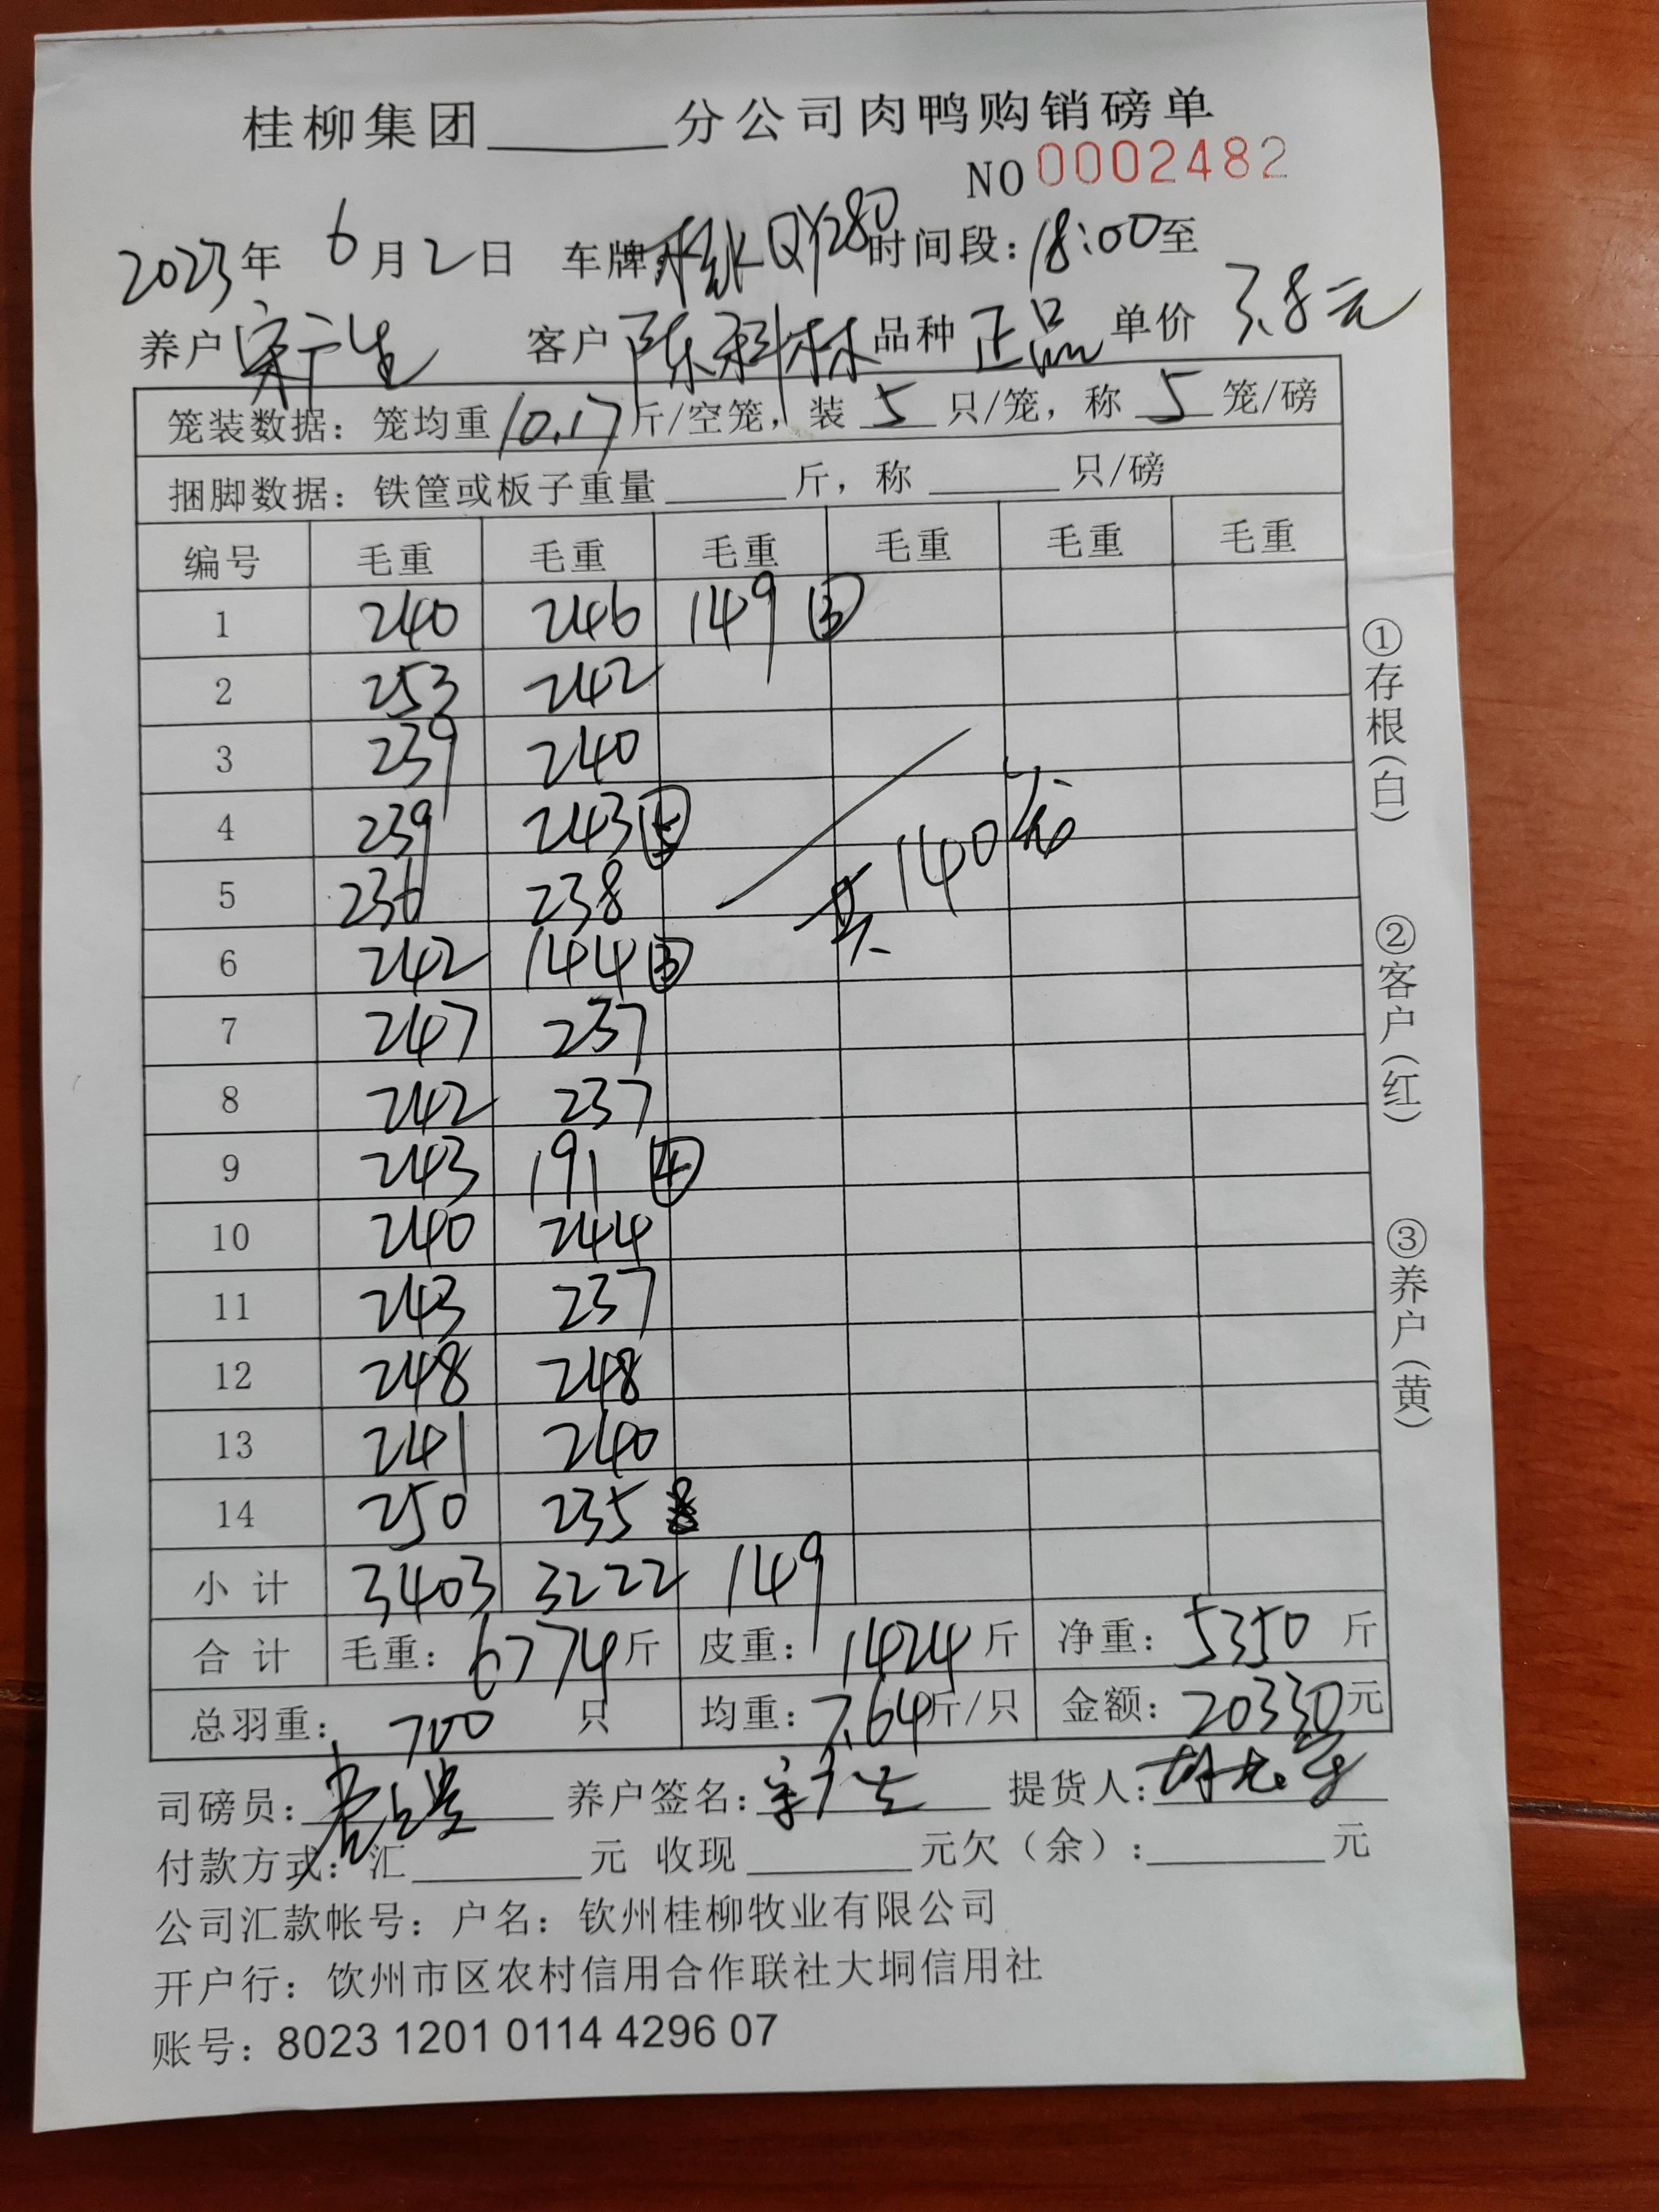 桂柳集团______分公司肉鸭购销磅单
NO 0002482
2023年 6月2日 车牌 QY280 时间段:18:00至
养户 宋广生 客户 陈利林 品种 正品 单价 3.8元
笼装数据: 笼均重10.17斤/空笼, 装 5 只/笼, 称 5 笼/磅
捆脚数据: 铁筐或板子重量______斤, 称______只/磅
编号 毛重 毛重 毛重 毛重 毛重 毛重
1 240 246 149 ③
2 253 242
3 239 240
4 239 243 ⑤
5 236 238
共140笼
6 242 144 ③
7 247 237
8 242 237
9 243 191 ④
10 240 244
11 243 237
12 248 248
13 241 240
14 250 235
小计 3403 3222 149
合计 毛重: 6774斤 皮重: 1424斤 净重: 5350 斤
总羽重: 700 只 均重: 7.64斤/只 金额: 20330元
司磅员: 养户签名: 宋广生 提货人:
付款方式: 汇______元 收现______元欠（余）:______元
公司汇款帐号: 户名: 钦州桂柳牧业有限公司
开户行: 饮州市区农村信用合作联社大垌信用社
账号: 8023 1201 0114 4296 07
①存根(白)
②客户(红)
③养户(黄)